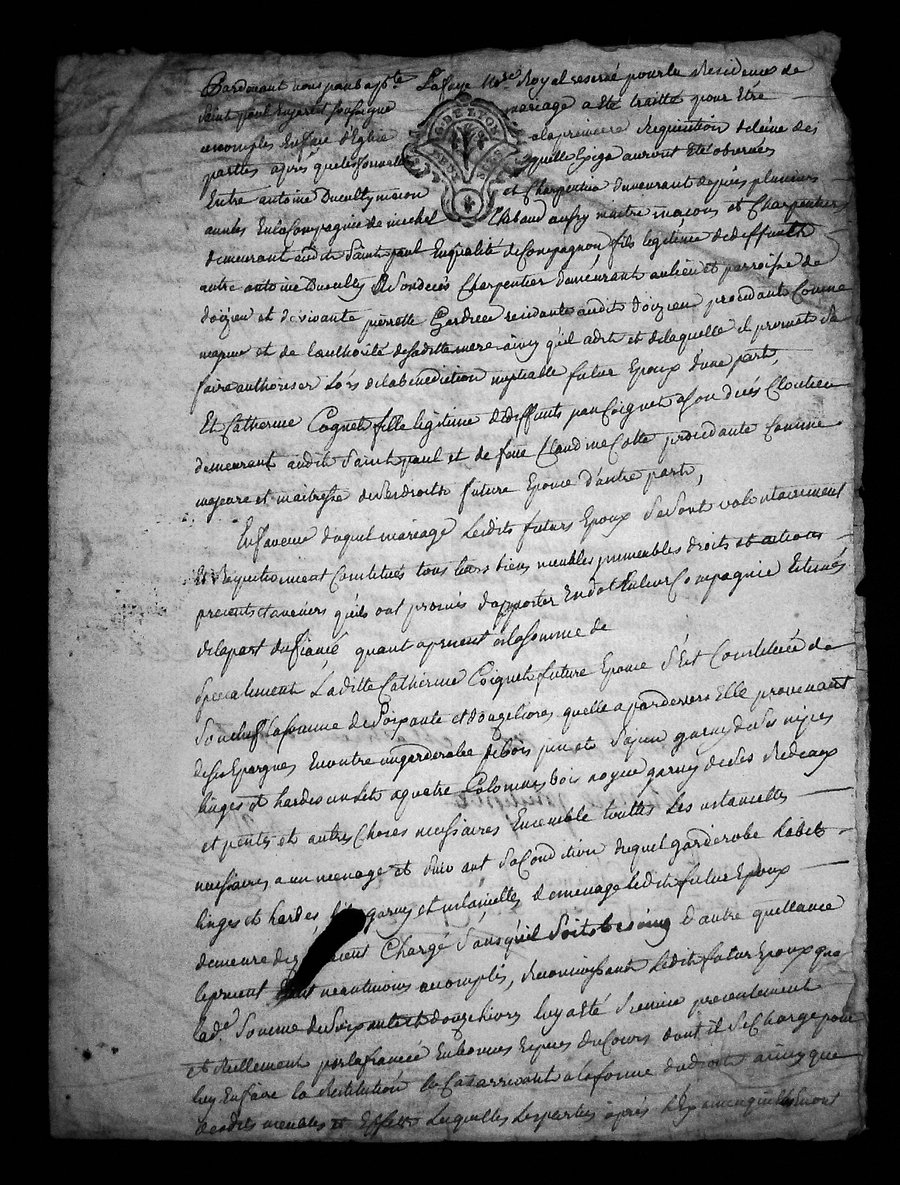 Pardevant nous Jean Bapte Lafaye No.re Royal reservé pour la Residence de
Saint paul En jarest soussigné mariage a Eté traitté pour Etre
accomply En face d'Eglise a la premiere Requisition de l'une des
parties après que les formalités Eglise auront Eté observées
Entre antoine Ducultÿ macon et Charpentier demeurant depuis plusieurs
années En la Compagnie de michel Chabaud aufry maitre macons et Charpentiers
demeurant audit Saint paul En qualité de Compagnon, fils legitime de deffunt
autre antoine Ducultÿ a son decés Charpentier demeurant au lieu et parroisse de
doizieu et de vivante pierrette residante audit doizieu procedant Comme
majeur et de l'authorité de saditte mere ainsy qu'il a dit et de laquelle il promet Se
faire authoriser Lors de la benediction nuptialle futur Epoux d'une part,
Et Catherine Coignet fille legitime de deffunts jean Coignet a Son decés Cloutier
demeurant audit Saint paul et de feüe Claudine Cotte procedante Comme
majeure et maitresse de Ses droits future Epouse d'autre part,
En faveur duquel mariage Lesdits futurs Epoux Se Sont volontairement
et Reciproquement Constitués tous leurs biens meubles immeubles droits et actions
presents et avenirs qu'ils ont promis d'apporter En dot En leur Compagnie Estimés
de la part du fiancé quant a present a la Somme de
Specialement Laditte Catherine Coignet future Epouse S'Est Constituée de
Son chef la Somme de Soixante et douze livres quelle a pardevers Elle provenant
de Ses Epargnes En outre un garderobe de bois pin et Sapin garny de Ses nipes
linges et hardes un Lit a quatre Colonnes bois noyer garny de Ses Rideaux
et pentes et autres Choses necessaires Ensemble touttes Les ustancilles
necessaires a un menage et Suivant Sa Condition duquel garderobe habits
linges et hardes, lit garny et ustancilles de menage ledit futur Epoux
demeure des a present Chargé Sans qu'il Soit besoing d'autre quittance
le present néantmoins accomply, Reconnoissant Ledit futur Epoux que
lad.e Somme de Soixante et douze livres luy a Eté Remise presentement
et Réellement par la fiancée En bonnes Especes du Cours dont il Se Charge pour
luy En faire la Restitution le Cas arrivant a la forme du droit ainsy que
desdits meubles et Effets Lesquelles Les parties après L'Examen quelles En ont